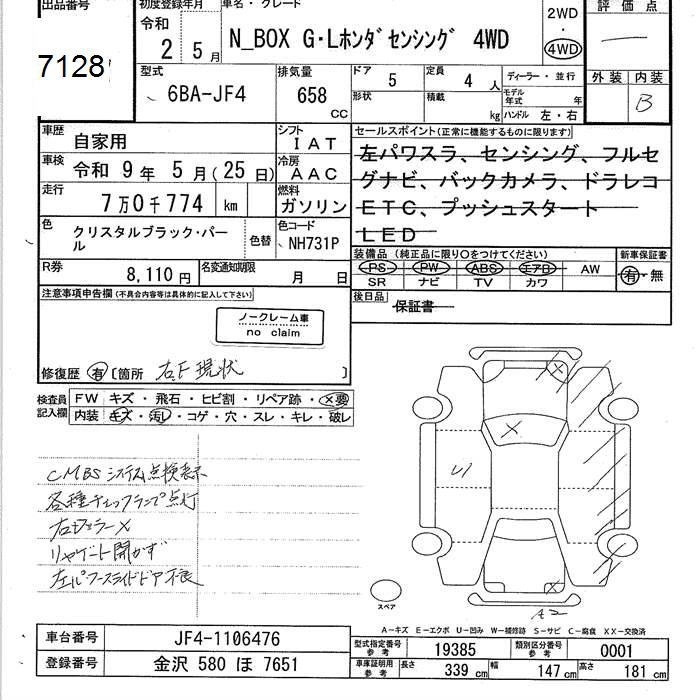 出品番号
7128
初度登録年月
令和
2 5月
車名・グレード
N_BOX G・Lホンダセンシング 4WD
2WD
・
4WD
評価点
型式
6BA-JF4
排気量
658
CC
ドア
5
定員
4 人
形状
積載
kg
ディーラー・並行
モデル年式
年
ハンドル 左・右
外装
内装
B
車歴
自家用
シフト
IAT
車検
令和 9年 5月(25日)
冷房
AAC
走行
7万0千774 km
燃料
ガソリン
色
クリスタルブラック・パール
色替
色コード
NH731P
R券
8,110円
名変通知期限
月 日
セールスポイント(正常に機能するものに限ります)
左パワスラ、センシング、フルセ
グナビ、バックカメラ、ドラレコ
ETC、プッシュスタート
LED
装備品 (純正品に限り○をつけてください)
PS PW ABS エアB AW
SR ナビ TV カワ
新車保証書
有・無
後日品
保証書
注意事項申告欄(不具合内容等は具体的に記入して下さい)
ノークレーム車
no claim
修復歴 有 〔箇所 右F現状 〕
検査員
記入欄
FW キズ・飛石・ヒビ割・リペア跡・×要
内装 キズ・汚レ・コゲ・穴・スレ・キレ・破レ
CMBSシステム点検表示
各種チェックランプ点灯
右ミラー×
リヤゲート開かず
左パワースライドドア不良
×
U1
A2
スペア
A-キズ E-エクボ U-凹み W-補修跡 S-サビ C-腐食 XX-交換済
車台番号
JF4-1106476
登録番号
金沢 580 ほ 7651
型式指定番号
参考
19385
類別区分番号
参考
0001
車庫証明用
参考
長さ
339 cm
幅
147 cm
高さ
181 cm